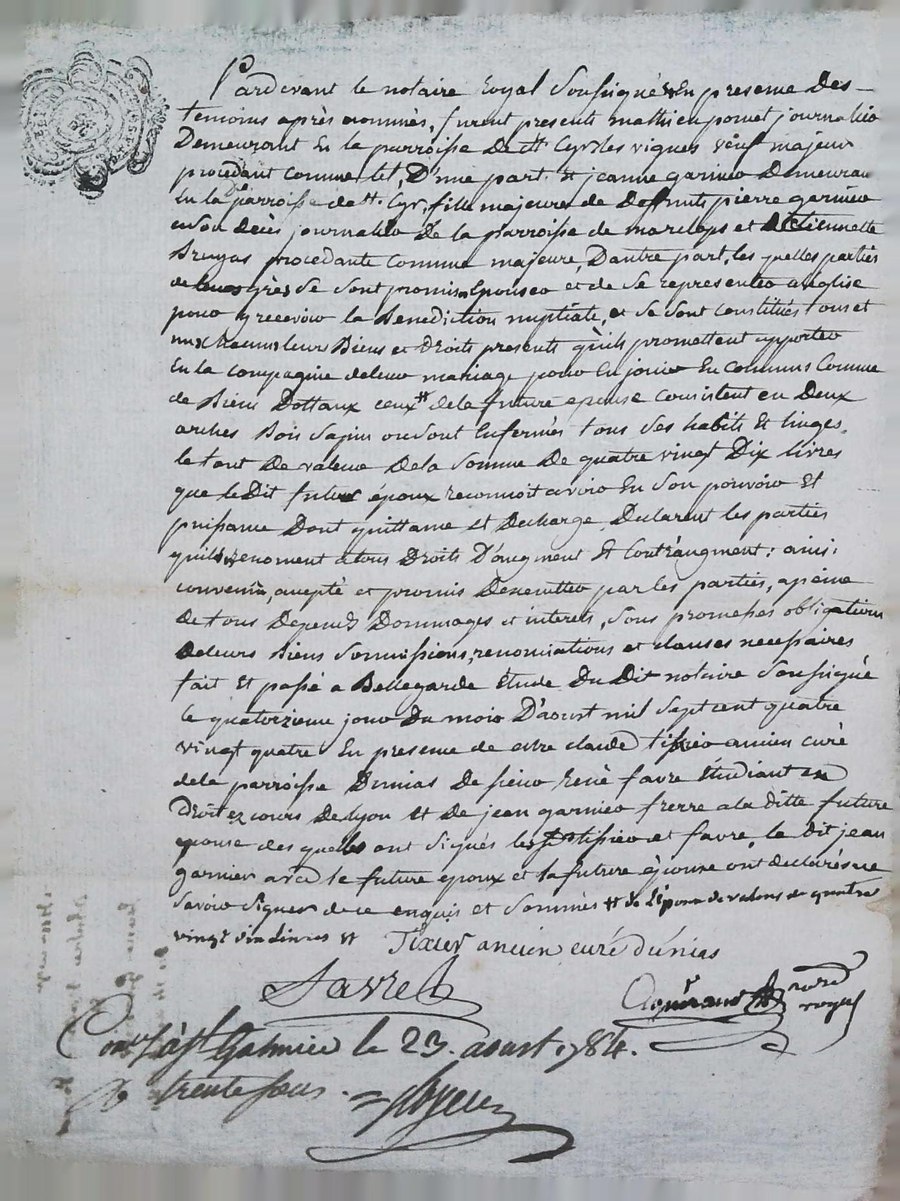 Pardevant le notaire royal soussigné & En presence Des
temoins après nommés, furent presents mathieu ponet journalier
Demeurant En la parroisse De st Cyr les vignes veuf majeur
procedant comme tel, D'une part. Et jeanne garnier Demeurant
En la de parroisse de st. Cyr, fille majeure de Deffunts pierre garnier
vivant journalier De la parroisse de marclops et Etiennette
procedante comme majeure, D'autre part, les quelles parties
de leurs grès se sont promis Epouser et de se representer a l'eglise
pour y recevoir la Benediction nuptiale, et se sont constitués tous et
uns chacuns leurs Biens et Droits presents qu'ils promettent apporter
En la compagnie de leur mariage pour En jouir En communs Comme
de Biens Dottaux ceux # de la future epouse consistent en Deux
arches Bois sapin ou sont Enfermés tous ses habits Et linges,
le tout De valeur De la somme De quatre vingt Dix livres
que le Dit futur époux reconnoit avoir En son pouvoir Et
puissance Dont quittance et Decharge Declarent les parties
qu'ils renoncent a tous Droits D'augment Et Contr'augment: ainsi
convenu, accepté et promis D'executer par les parties, a peine
De tous Depends Dommages et interets, sous promesses obligations
De leurs Biens soumissions, renonciations et clauses necessaires
fait Et passé a Bellegarde Etude Du Dit notaire soussigné
le quatorzieme jour Du mois D'aoust mil sept cent quatre
vingt quatre En presence de claude tixier ancien curé
de la parroisse Dunias De sieur René favre Etudiant en
Droit ez cours De lyon Et De jean garnier frerre a la ditte future
epouse des quelles ont signés les Dts tixier et favre, le dit jean
garnier avec le future epoux et la future épouse ont declarés ne
savoir signer de ce enquis et sommés # de l'époux de valeur de quatre
vingt dix livres #
Tixier ancien curé dunias
favre
notre
royal
Con.lé à st Galmier le 23. aoust 1784.
R trente sous.